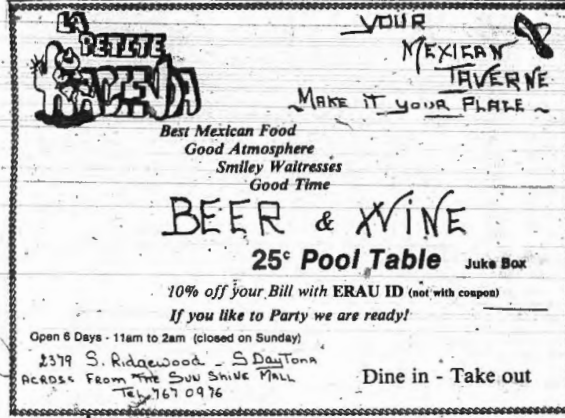 LA
PETITE
HACIENDA
YOUR
MEXICAN
TAVERNE
~ MAKE IT YOUR PLACE ~
Best Mexican Food
Good Atmosphere
Smiley Waitresses
Good Time
BEER & WINE
25¢ Pool Table Juke Box
10% off your Bill with ERAU ID (not with coupon)
If you like to Party we are ready!
Open 6 Days - 11am to 2am (closed on Sunday)
2379 S. Ridgewood - S DayTona
ACROSS FROM THE SUN SHINE MALL
TEL 767 0976
Dine in - Take out